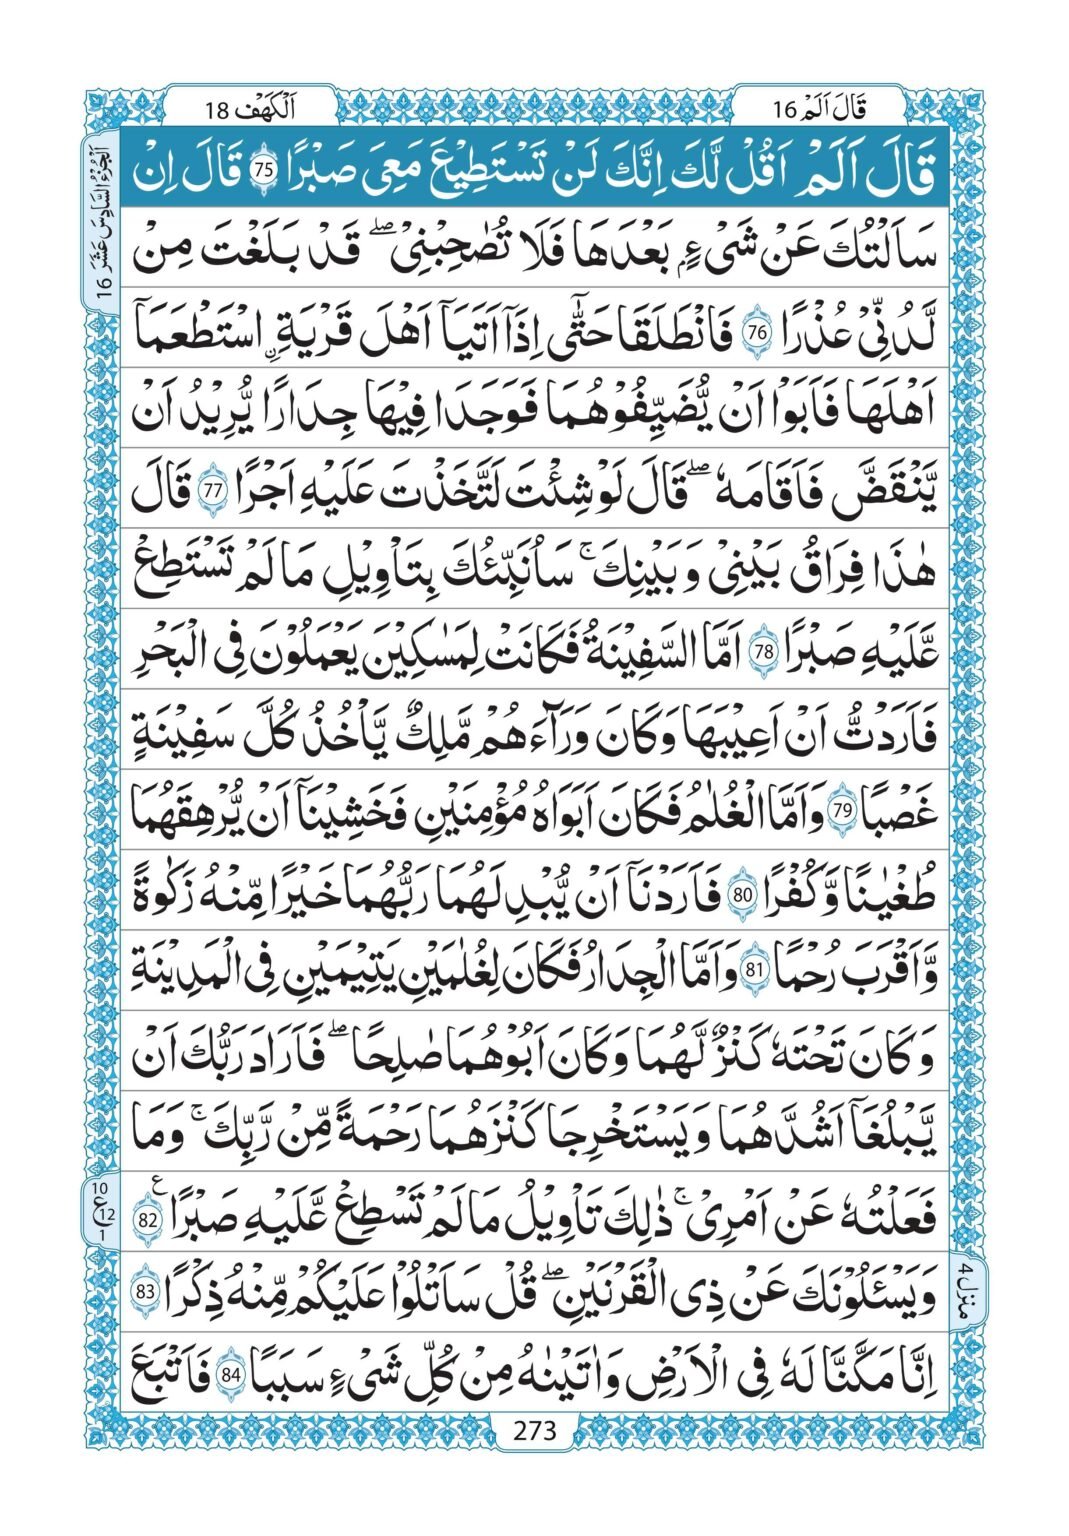 اَلْكَهْف 18
قَالَ اَلَمْ 16
اَلْجُزْءُ السَّادِسَ عَشَرَ 16
قَالَ اَلَمْ اَقُلْ لَّكَ اِنَّكَ لَنْ تَسْتَطِيْعَ مَعِىَ صَبْرًا 75 قَالَ اِنْ
سَاَلْتُكَ عَنْ شَىْءٍۭ بَعْدَهَا فَلَا تُصٰحِبْنِىْ ۖ قَدْ بَلَغْتَ مِنْ
لَّدُنِّىْ عُذْرًا 76 فَانْطَلَقَا حَتّٰٓى اِذَآ اَتَيَآ اَهْلَ قَرْيَةِ ۨ اسْتَطْعَمَآ
اَهْلَهَا فَاَبَوْا اَنْ يُّضَيِّفُوْهُمَا فَوَجَدَا فِيْهَا جِدَارًا يُّرِيْدُ اَنْ
يَّنْقَضَّ فَاَقَامَهٗ ۖ قَالَ لَوْ شِئْتَ لَتَّخَذْتَ عَلَيْهِ اَجْرًا 77 قَالَ
هٰذَا فِرَاقُ بَيْنِىْ وَبَيْنِكَ ۚ سَاُنَبِّئُكَ بِتَاْوِيْلِ مَا لَمْ تَسْتَطِعْ
عَّلَيْهِ صَبْرًا 78 اَمَّا السَّفِيْنَةُ فَكَانَتْ لِمَسٰكِيْنَ يَعْمَلُوْنَ فِى الْبَحْرِ
فَاَرَدْتُّ اَنْ اَعِيْبَهَا وَكَانَ وَرَآءَهُمْ مَّلِكٌ يَّاْخُذُ كُلَّ سَفِيْنَةٍ
غَصْبًا 79 وَاَمَّا الْغُلٰمُ فَكَانَ اَبَوَاهُ مُؤْمِنَيْنِ فَخَشِيْنَآ اَنْ يُّرْهِقَهُمَا
طُغْيٰنًا وَّكُفْرًا 80 فَاَرَدْنَآ اَنْ يُّبْدِلَهُمَا رَبُّهُمَا خَيْرًا مِّنْهُ زَكٰوةً
وَّاَقْرَبَ رُحْمًا 81 وَاَمَّا الْجِدَارُ فَكَانَ لِغُلٰمَيْنِ يَتِيْمَيْنِ فِى الْمَدِيْنَةِ
وَكَانَ تَحْتَهٗ كَنْزٌ لَّهُمَا وَكَانَ اَبُوْهُمَا صٰلِحًا ۖ فَاَرَادَ رَبُّكَ اَنْ
يَّبْلُغَآ اَشُدَّهُمَا وَيَسْتَخْرِجَا كَنْزَهُمَا رَحْمَةً مِّنْ رَّبِّكَ ۚ وَمَا
فَعَلْتُهٗ عَنْ اَمْرِىْ ۚ ذٰلِكَ تَاْوِيْلُ مَا لَمْ تَسْطِعْ عَّلَيْهِ صَبْرًا ع 82
10
ع 12
1
وَيَسْـَٔلُوْنَكَ عَنْ ذِى الْقَرْنَيْنِ ۖ قُلْ سَاَتْلُوْا عَلَيْكُمْ مِّنْهُ ذِكْرًا 83
منزل 4
اِنَّا مَكَّنَّا لَهٗ فِى الْاَرْضِ وَاٰتَيْنٰهُ مِنْ كُلِّ شَىْءٍ سَبَبًا 84 فَاَتْبَعَ
273